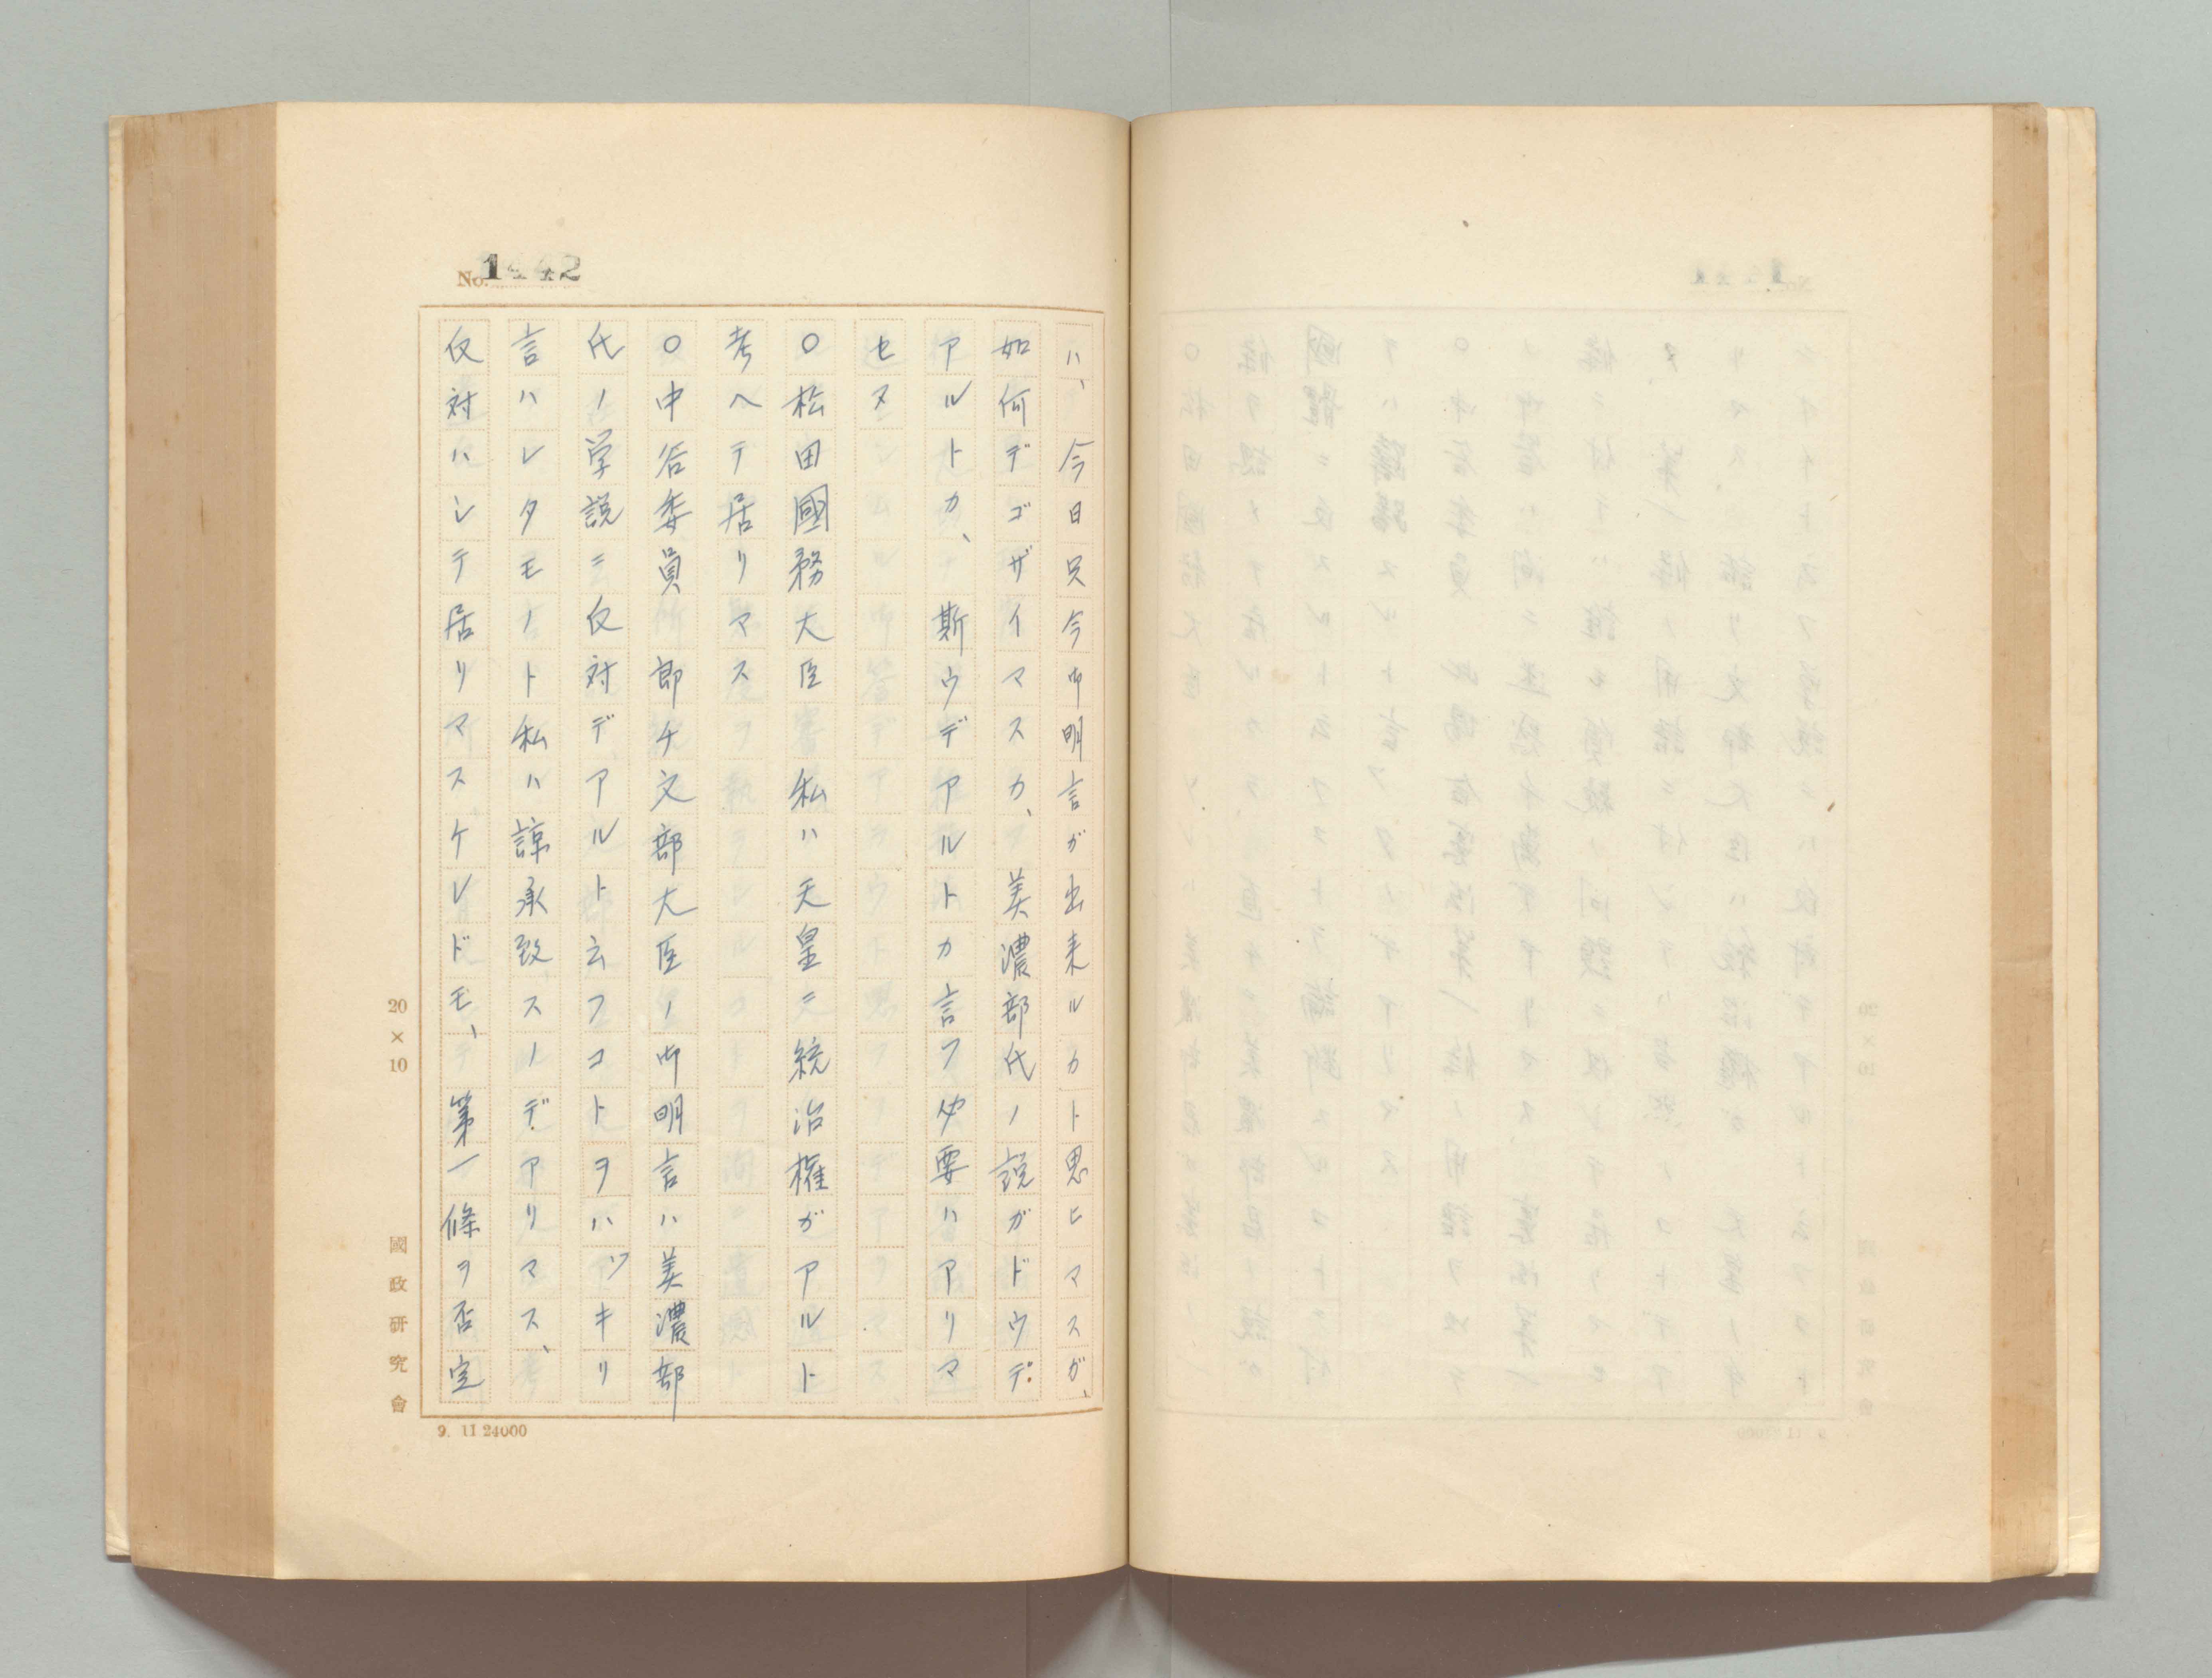 No. 1442
ハ、今日只今御明言ガ出来ルカト思ヒマスガ、
如何デゴザイマスカ、美濃部氏ノ説ガドウデ
アルトカ、斯ウデアルトカ言フ必要ハアリマ
セヌ
〇松田國務大臣 私ハ天皇ニ統治権ガアルト
考ヘテ居リマス
〇中谷委員 即チ文部大臣ノ御明言ハ美濃部
氏ノ学説ニ反対デアルト云フコトヲハツキリ
言ハレタモノト私ハ諒承致スノデアリマス、
反対ハシテ居リマスケレドモ、第一條ヲ否定
20×10
國政研究會
9. 11 24000